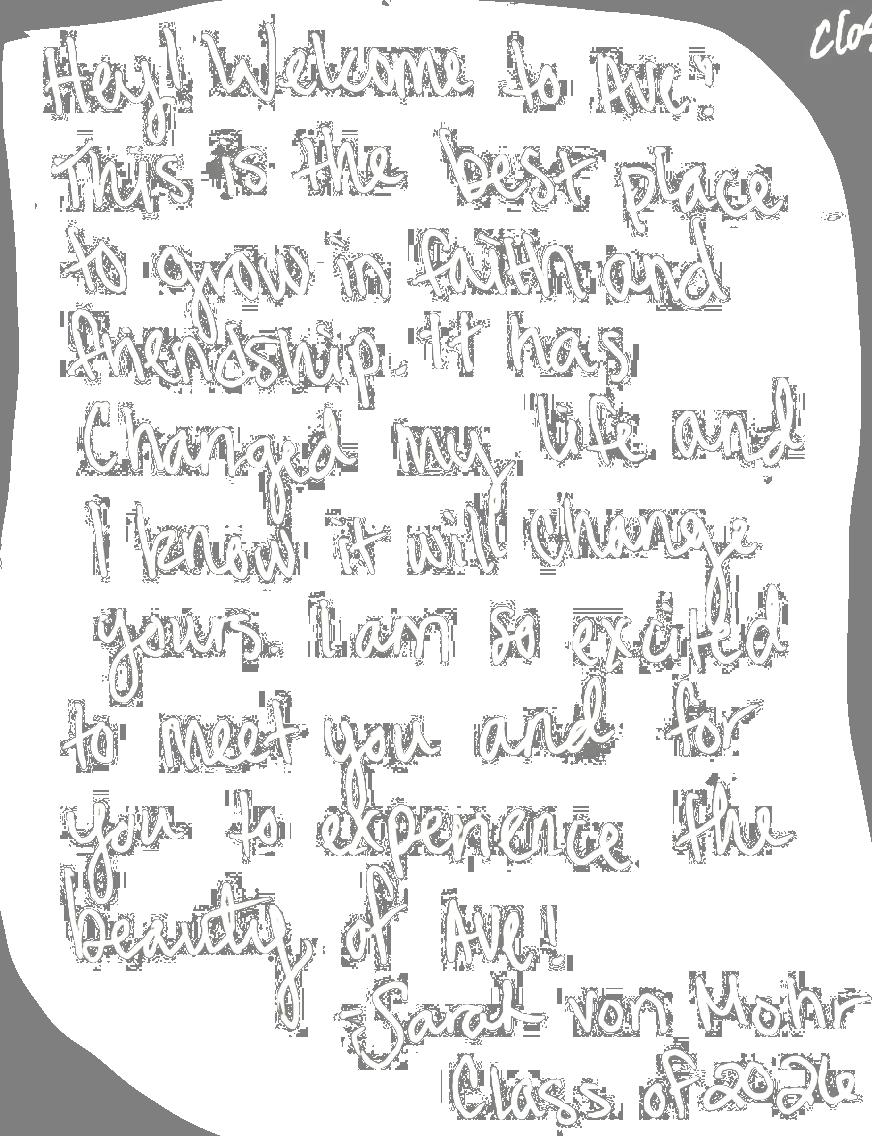 Hey! Welcome to Ave!
This is the best place
to grow in faith and
friendship. It has
Changed my life and
I know it will change
yours. I am so excited
to meet you and for
you to experience the
beauty of Ave!
-Sarah von Mohr
Class of 2026